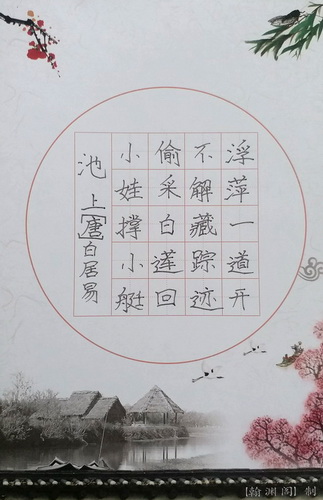 池上[唐]白居易
小娃撑小艇
偷采白莲回
不解藏踪迹
浮萍一道开
【翰渊阁】制